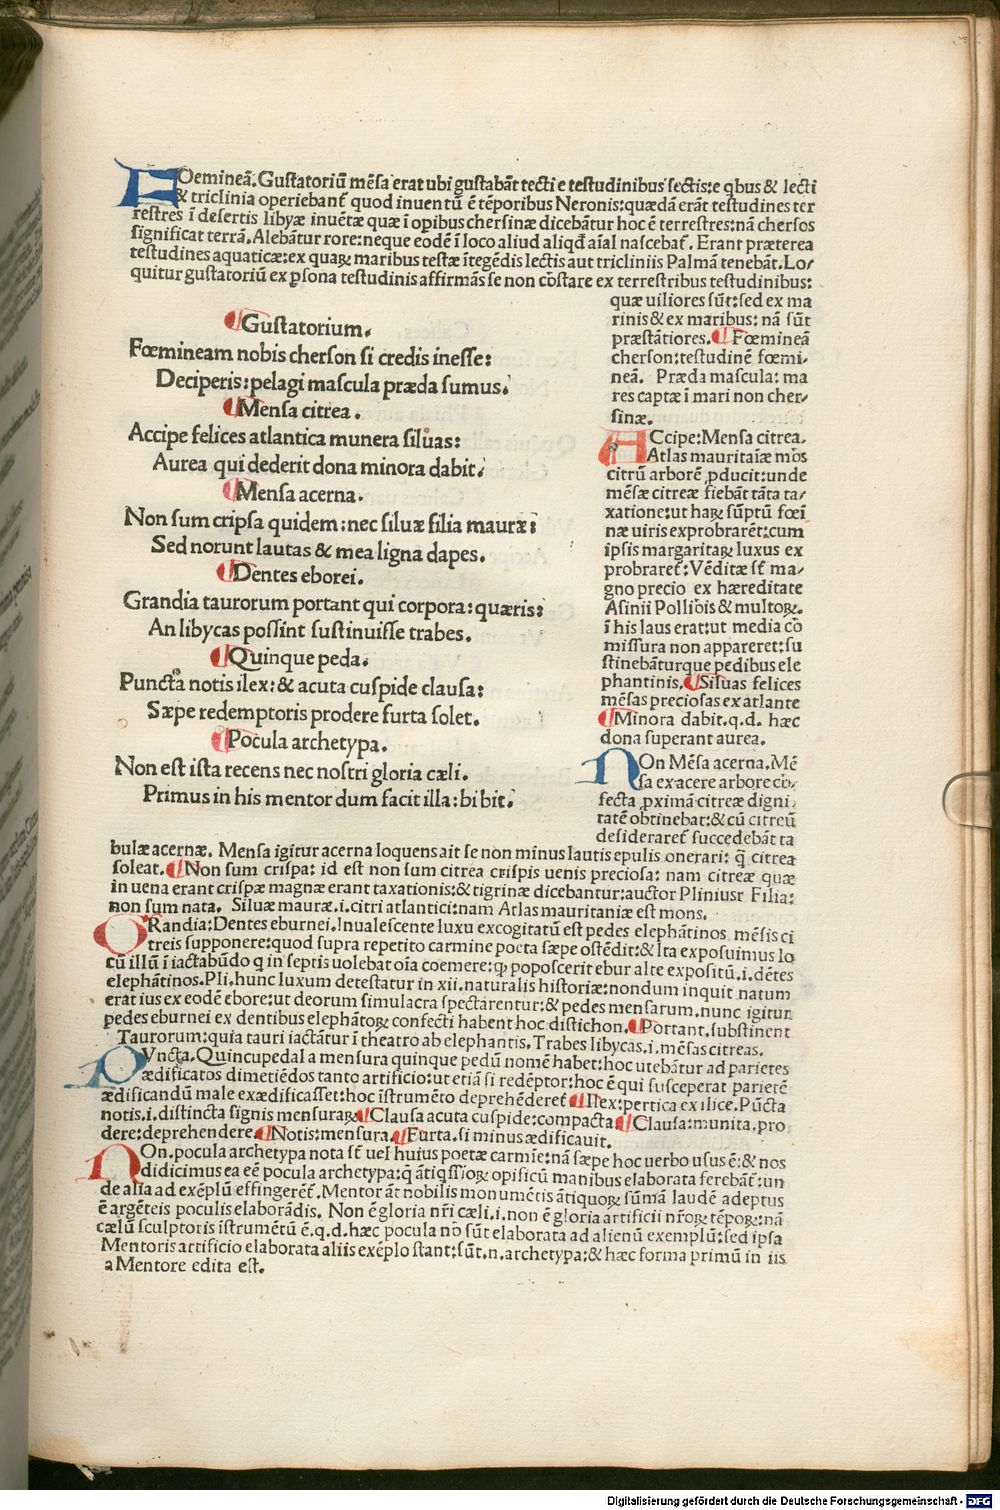 FOemineã. Gustatoriũ mẽsa erat ubi gustabãt tecti e testudinibus sectis: e qbus & lecti
& triclinia operiebant᷑ quod inuentũ ẽ tẽporibus Neronis: quædã erãt testudines ter
restres ĩ desertis libyæ inuẽtæ quæ ĩ opibus chersinæ dicebãtur hoc ẽ terrestres: nã chersos
significat terrã. Alebãtur rore: neque eodẽ ĩ loco aliud aliqd aĩal nascebat᷑. Erant præterea
testudines aquaticæ: ex quaꝝ maribus testæ ĩtegẽdis lectis aut tricliniis Palmã tenebãt. Lo/
quitur gustatoriũ ex ꝑsona testudinis affirmãs se non cõstare ex terrestribus testudinibus:
quæ uiliores sũt: sed ex ma
rinis & ex maribus: nã sũt
præstãtiores. ¶ Fœmineã
cherson: testudinẽ fœmi/
neã. Præda mascula: ma
res captæ ĩ mari non cher/
sinæ.
¶ Gustatorium.
Fœmineam nobis cherson si credis inesse:
Deciperis: pelagi mascula præda sumus.
¶ Mensa citrea.
Accipe felices atlantica munera siluas:
Aurea qui dederit dona minora dabit.
¶ Mensa acerna.
Non sum cripsa quidem: nec siluæ filia mauræ:
Sed norunt lautas & mea ligna dapes.
¶ Dentes eborei.
Grandia taurorum portant qui corpora: quæris:
An libycas possint sustinuisse trabes.
¶ Quinque peda.
Puncta notis ilex: & acuta cuspide clausa:
Sæpe redemptoris prodere furta solet.
¶ Pocula archetypa.
Non est ista recens nec nostri gloria cæli.
Primus in his mentor dum facit illa: bibit.
ACcipe: Mensa citrea.
Atlas mauritaĩæ mõs
citrũ arborẽ ꝓducit: unde
mẽsæ citreæ fiebãt tãta ta/
xatione: ut haꝝ sũptũ fœĩ
næ uiris exprobrarẽt: cum
ipsis margaritaꝝ luxus ex
probraret᷑: Vẽditæ st᷑ ma/
gno precio ex hæreditate
Asinii Pollĩois & multoꝝ.
ĩ his laus erat: ut media cõ
missura non appareret: su
stinebãturque pedibus ele
phantinis. ¶ Siluas felices
mẽsas preciosas ex atlante
¶ Minora dabit. q.d. hæc
dona superant aurea.
NOn Mẽsa acerna. Mẽ
sa ex acere arbore cõ/
fecta ꝓximã citreæ digni/
tatẽ obtinebat: & cũ citreũ
desideraret᷑ succedebãt ta
bulæ acernæ. Mensa igitur acerna loquens ait se non minus lautis epulis onerari: q̃ citrea
soleat. ¶ Non sum crispa: id est non sum citrea crispis uenis preciosa: nam citreæ quæ
in uena erant crispæ magnæ erant taxationis: & tigrinæ dicebantur: auctor Pliniusr Filia:
non sum nata. Siluæ mauræ. i. citri atlantici: nam Atlas mauritaniæ est mons.
GRandia: Dentes eburnei. Inualescente luxu excogitatũ est pedes elephãtinos mẽsis ci
treis supponere: quod supra repetito carmine poeta sæpe ostẽdit: & Ita exposuimus lo
cũ illũ ĩ iactabũdo q in septis uolebat oĩa coemere: ꝙ poposcerit ebur alte expositũ. i. dẽtes
elephãtinos. Pli. hunc luxum detestatur in xii. naturalis historiæ: nondum inquit natum
erat ius ex eodẽ ebore: ut deorum simulacra spectarentur: & pedes mensarum. nunc igitur
pedes eburnei ex dentibus elephãtoꝝ confecti habent hoc distichon. ¶ Portant. substinent
Taurorum: quia tauri iactãtur ĩ theatro ab elephantis. Trabes libycas. i. mẽsas citreas.
PVncta. Quincupedal a mensura quinque pedũ nomẽ habet: hoc utebãtur ad parietes
ædificatos dimetiẽdos tanto artificio: ut etiã si redẽptor: hoc ẽ qui susceperat parietẽ
ædificandũ male exædificasset: hoc istrumẽto deprehẽderet᷑ ¶ Ilex: pertica ex ilice. Pũcta
notis. i. distincta signis mensuraꝝ ¶ Clausa acuta cuspide: compacta ¶ Clausa: munita. pro
dere: deprehendere. ¶ Notis: mensura. ¶ Furta. si minus ædificauit.
NOn. pocula archetypa nota st᷑ uel huius poetæ carmĩe: nã sæpe hoc uerbo usus ẽ: & nos
didicimus ea eẽ pocula archetypa: q̃ ãtiqssioꝝ opificũ manibus elaborata ferebãt᷑: un
de alia ad exẽplũ effingerẽt᷑. Mentor ãt nobilis monumẽtis ãtiquoꝝ sũmã laudẽ adeptus
ẽ argẽteis poculis elaborãdis. Non ẽ gloria nr̃i cæli. i. non ẽ gloria artificii nr̃oꝝ tẽpoꝝ: nã
cælũ sculptoris ĩstrumẽtũ ẽ. q.d. hæc pocula nõ sũt elaborata ad alienũ exemplũ: sed ipsa
Mentoris artificio elaborata aliis exẽplo stant: sũt. n. archetypa: & hæc forma primũ in iis
a Mentore edita est.
Digitalisierung gefördert durch die Deutsche Forschungsgemeinschaft - DFG